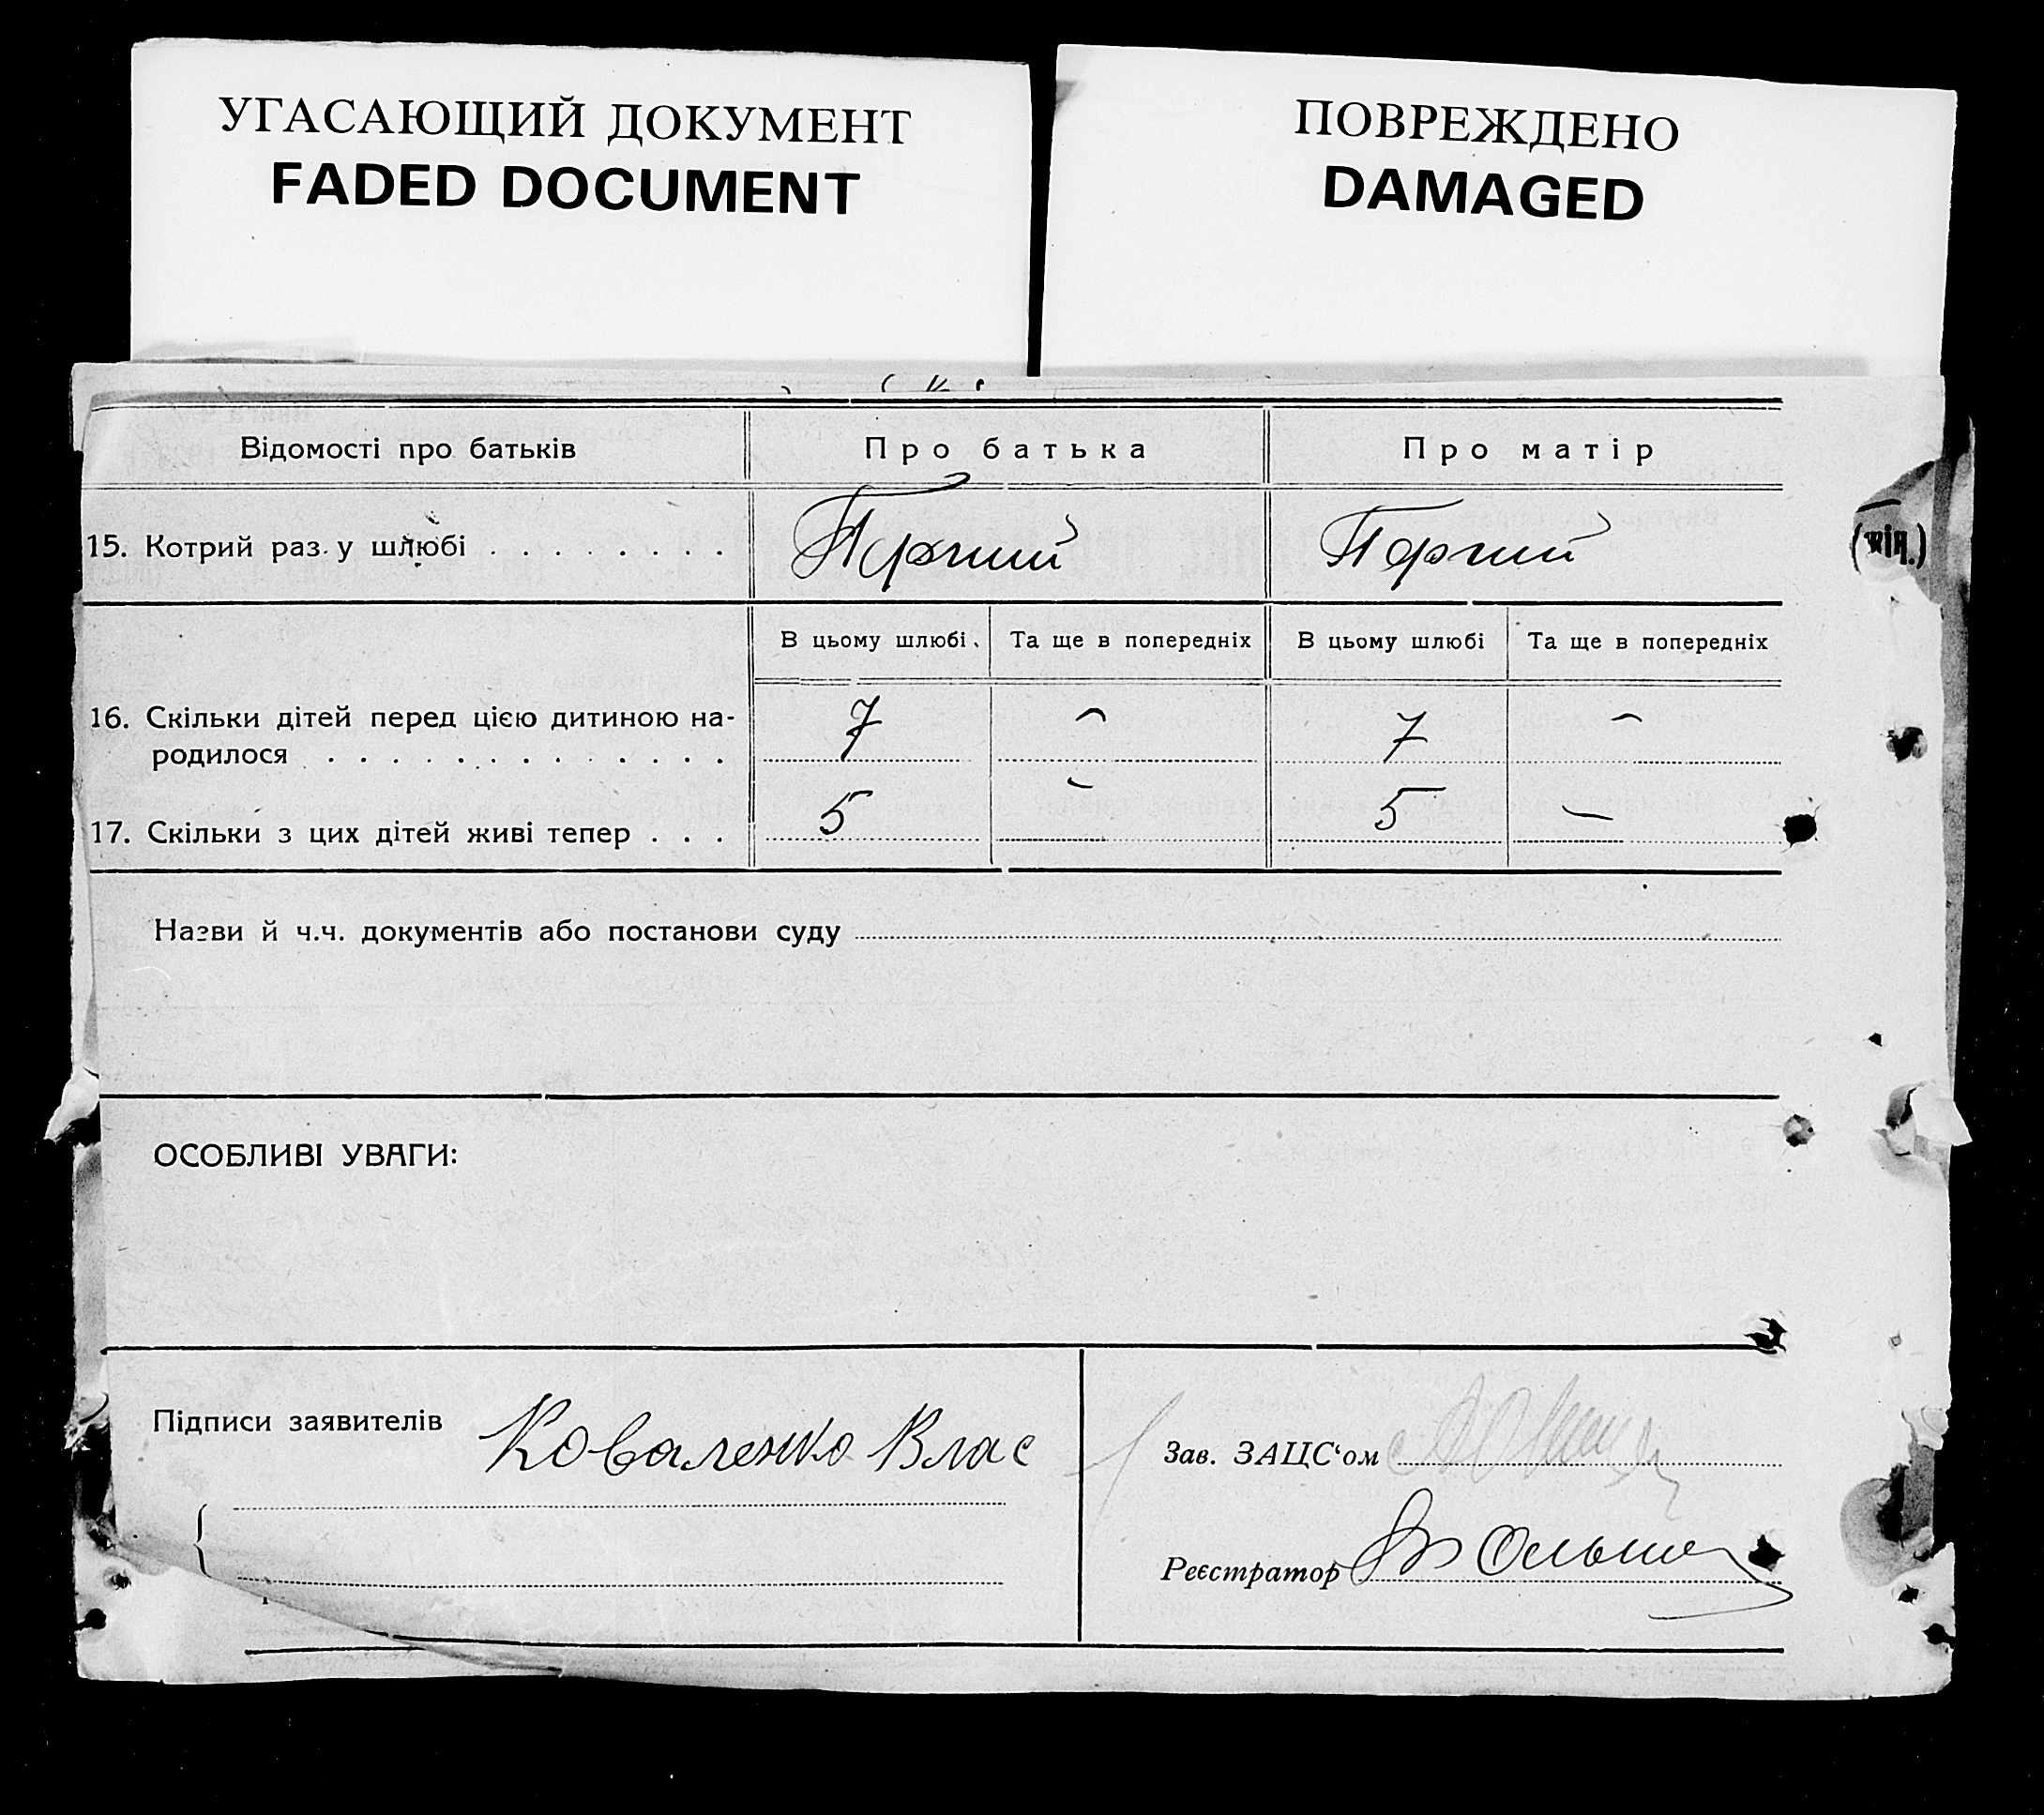 УГАСАЮЩИЙ ДОКУМЕНТ
FADED DOCUMENT
ПОВРЕЖДЕНО
DAMAGED
Відомості про батьків Про батька Про матір
15. Котрий раз у шлюбі . . . . . . . . Перший Перший
(кін.)
В цьому шлюбі Та ще в попередніх В цьому шлюбі Та ще в попередніх
16. Скільки дітей перед цією дитиною на- 7 – 7 –
родилося . . . . . . . . . . . . .
17. Скільки з цих дітей живі тепер . . . 5 – 5 –
Назви й ч.ч. документів або постанови суду
ОСОБЛИВІ УВАГИ:
Підписи заявителів Коваленко Влас
Зав. ЗАЦС‘ом
Реєстратор